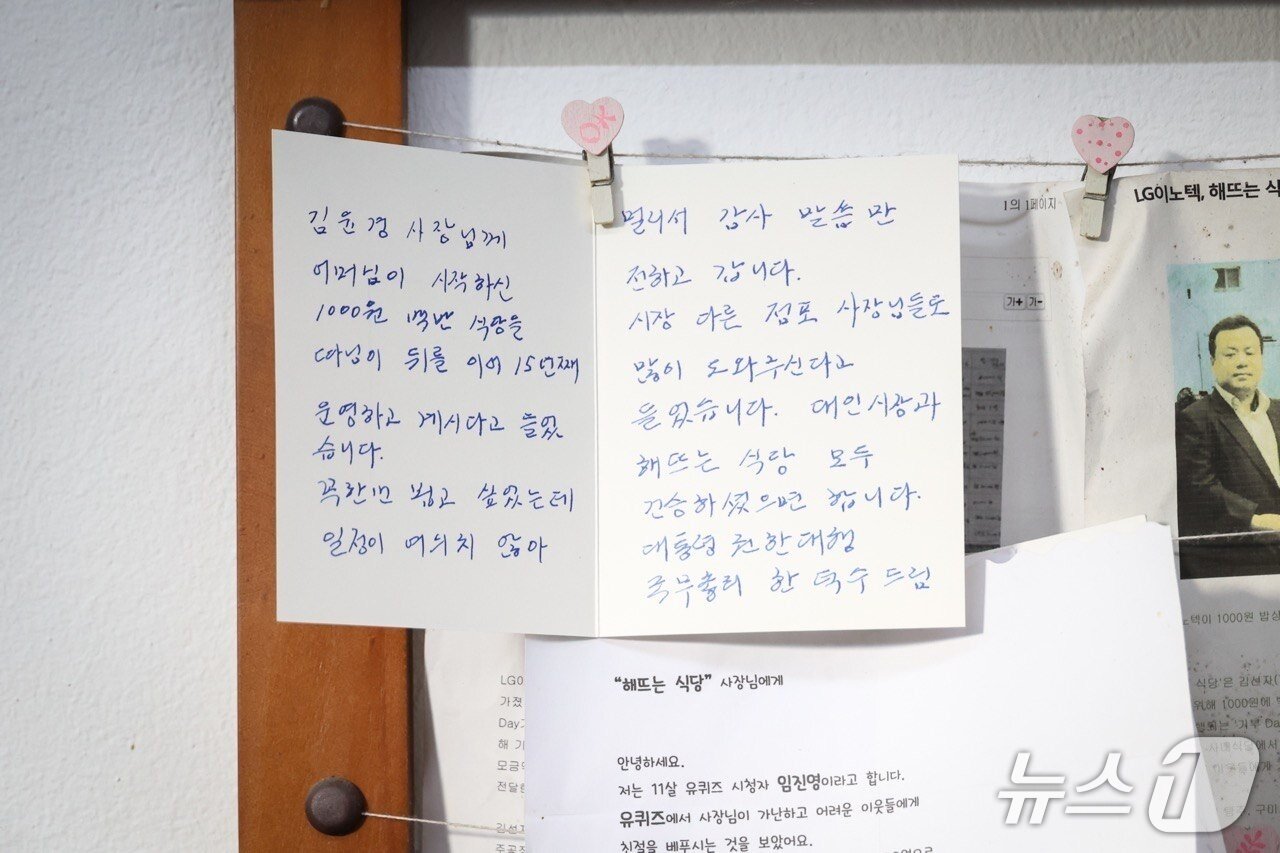 김윤경 사장님께
어머님이 시작하신
1000원 백반 식당을
따님이 뒤를 이어 15년째
운영하고 계시다고 들었
습니다.
꼭한번 뵙고 싶었는데
일정이 여의치 않아
멀리서 감사 말씀만
전하고 갑니다.
시장 다른 점포 사장님들도
많이 도와주신다고
들었습니다. 대인시장과
해뜨는 식당 모두
건승하셨으면 합니다.
대통령 권한대행
국무총리 한덕수 드림
OK
1의 1페이지
가+ 가-
LG이노텍, 해뜨는 식
노텍이 1000원 밥상
식당'은 김선자(
위해 1000원에
는 '기부 Da
사내식당에서
LG이
가졌
Day
해 기
모금
전달
김선자
주공
"해뜨는 식당" 사장님에게
안녕하세요.
저는 11살 유퀴즈 시청자 임진영이라고 합니다.
유퀴즈에서 사장님이 가난하고 어려운 이웃들에게
친절을 베푸시는 것을 보았어요.
뉴스1